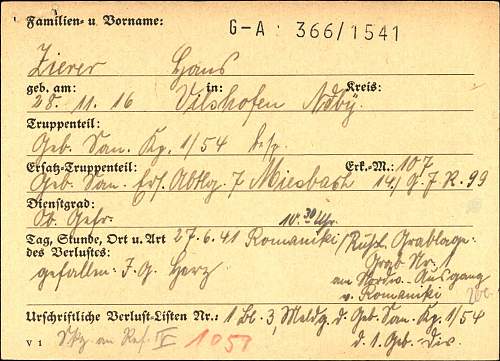 Familien- u. Vorname: G-A: 366/1541
Zierer Hans
geb. am: in: Kreis:
28. 11. 16 Vilshofen Ndby.
Truppenteil:
Geb. San. Kp. 1/54
Ersatz-Truppenteil: Erk.-M.: 107
Geb. San. Ers. Abtlg. 7 Miesbach 14./G.J.R. 99
Dienstgrad:
Ob. Gefr. 10.30 Uhr
Tag, Stunde, Ort u. Art 27.6.41 Romaniki/Rußl. Grablage:
des Verlustes: Grab Nr. 1
gefallen: J. G. Herz am Nordw. Ausgang
v. Romaniki
Urschriftliche Verlust-Listen Nr.: 1 Bl. 3, Meldg. d. Geb. San. Kp. 1/54
V 1 an Ref. IV 1051 d. 1. Geb. Div.